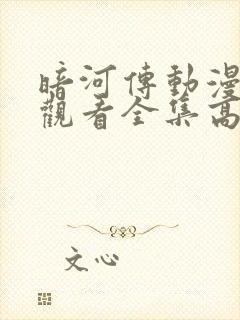 暗河傳動漫
觀看全集高
文心